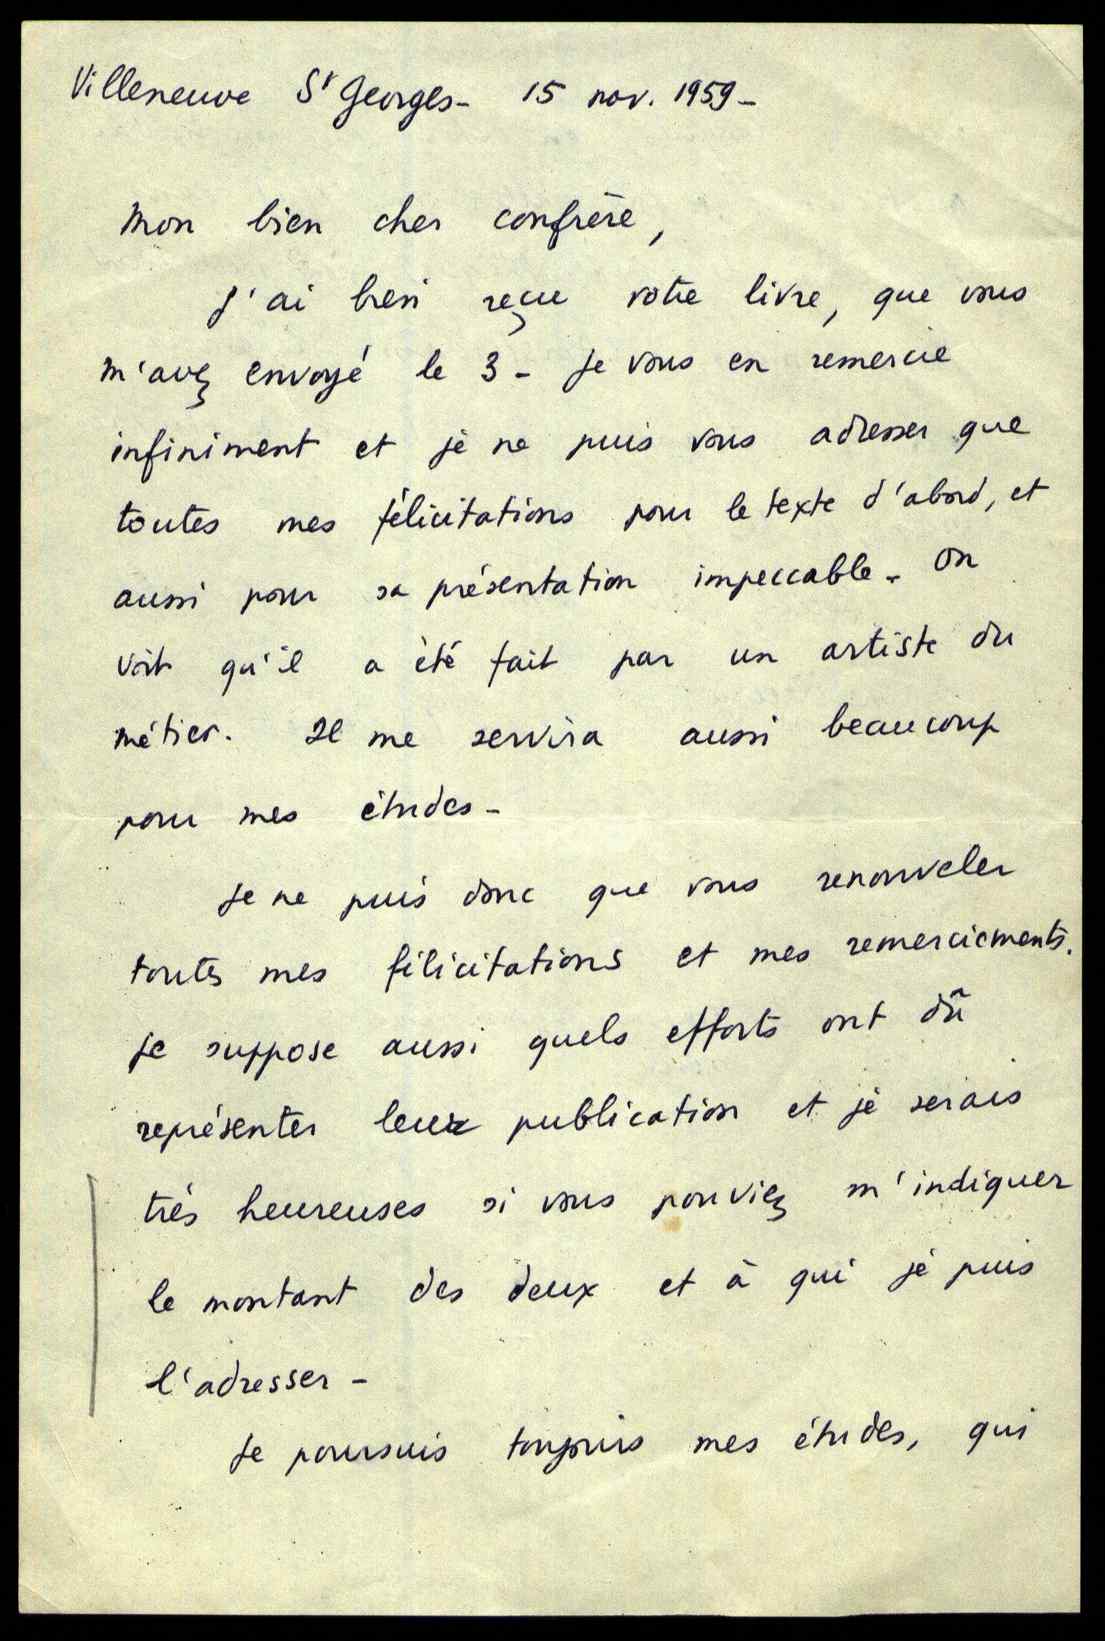 Villeneuve St Georges - 15 nov. 1959 -
Mon bien cher confrère,
J'ai bien reçu votre livre, que vous
m'avez envoyé le 3 - Je vous en remercie
infiniment et je ne puis vous adresser que
toutes mes félicitations pour le texte d'abord, et
aussi pour sa présentation impeccable - On
voit qu'il a été fait par un artiste du
métier. Il me servira aussi beaucoup
pour mes études -
Je ne puis donc que vous renouveler
toutes mes félicitations et mes remerciements.
Je suppose aussi quels efforts ont dû
représenter leur publication et je serais
très heureuses si vous pouviez m'indiquer
le montant des deux et à qui je puis
l'adresser -
Je poursuis toujours mes études, qui